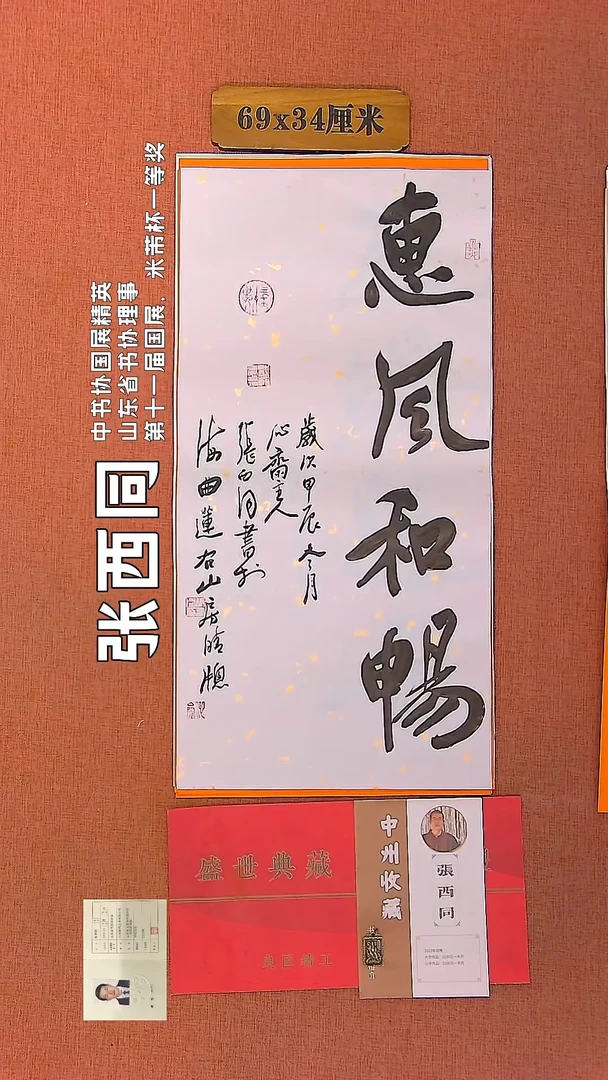 69x34厘米
惠風和暢
歲次甲辰九月
沁齋主人
張西同書於
海曲蓮右山房晴牕
张西同
中书协国展精英
山东省书协理事
第十一届国展，米芾杯一等奖
盛世典藏
中州收藏
張西同